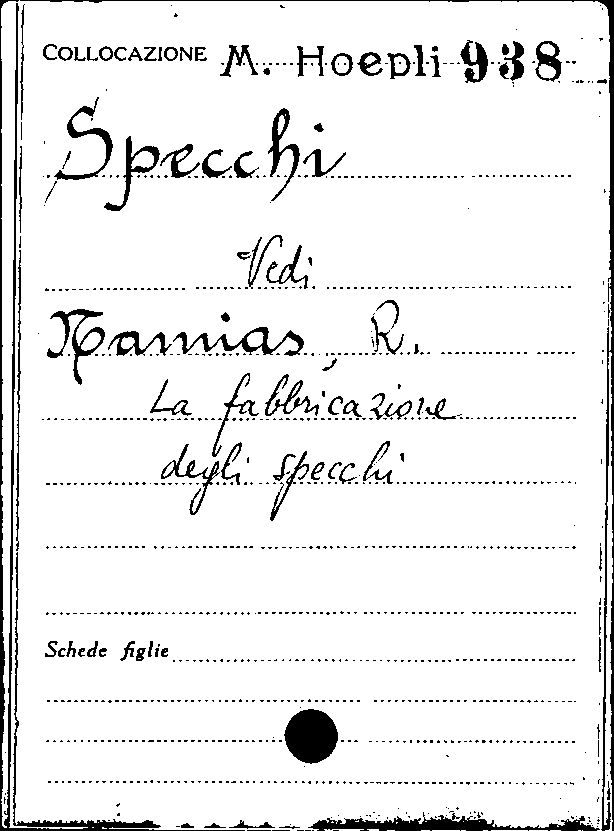 COLLOCAZIONE M. Hoepli 938
Specchi
Vedi
Namias, R.
La fabbricazione
degli specchi
Schede figlie